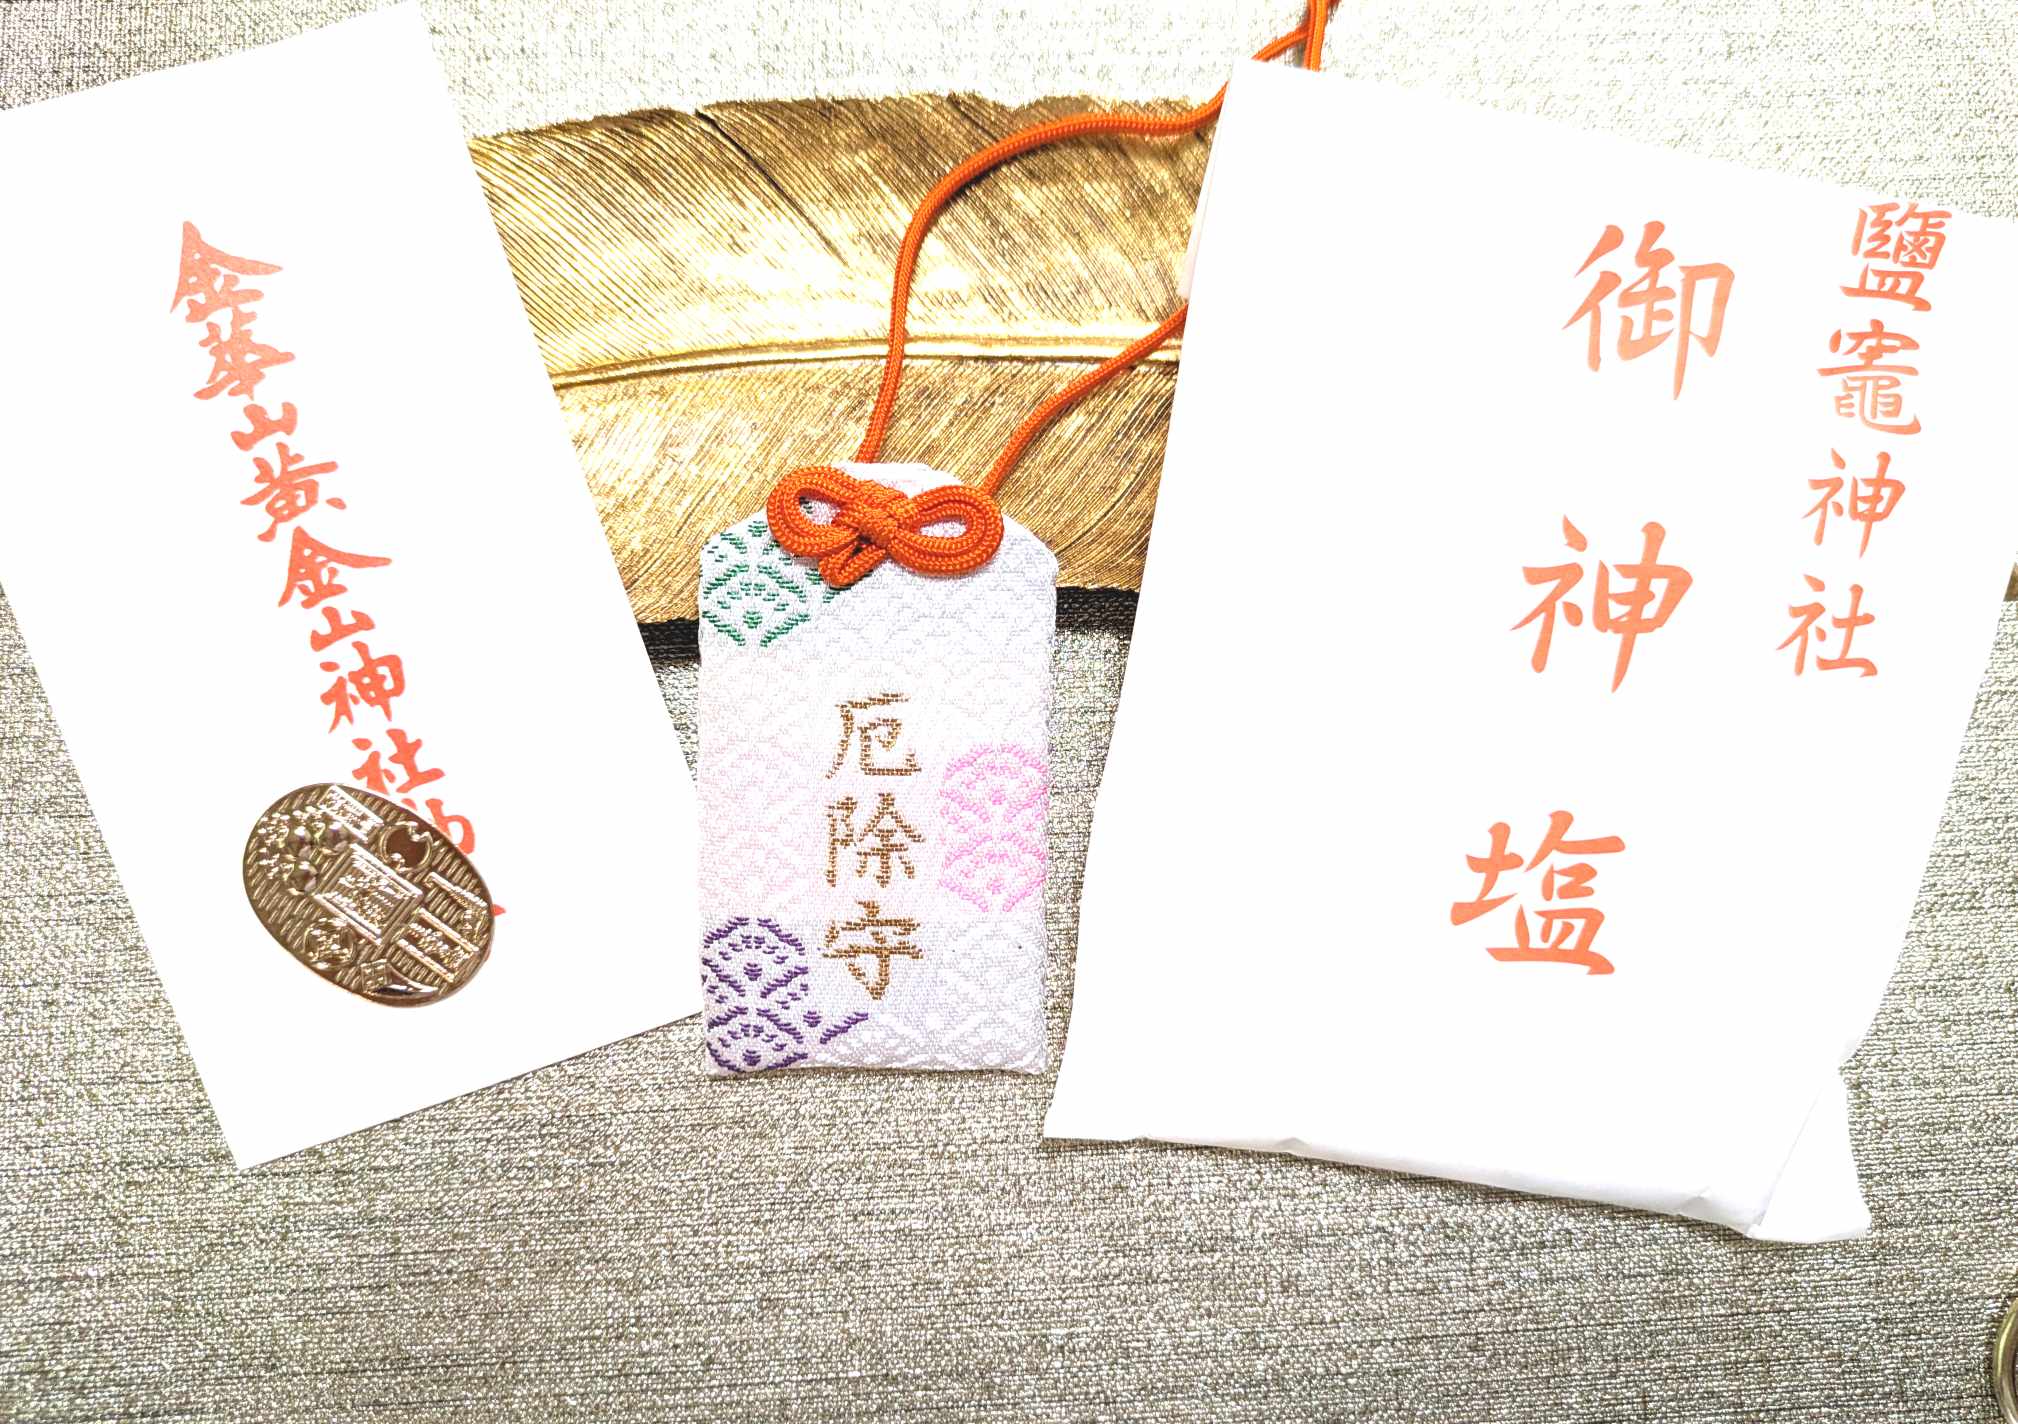 金華山黄金山神社
厄除守
鹽竈神社
御神塩